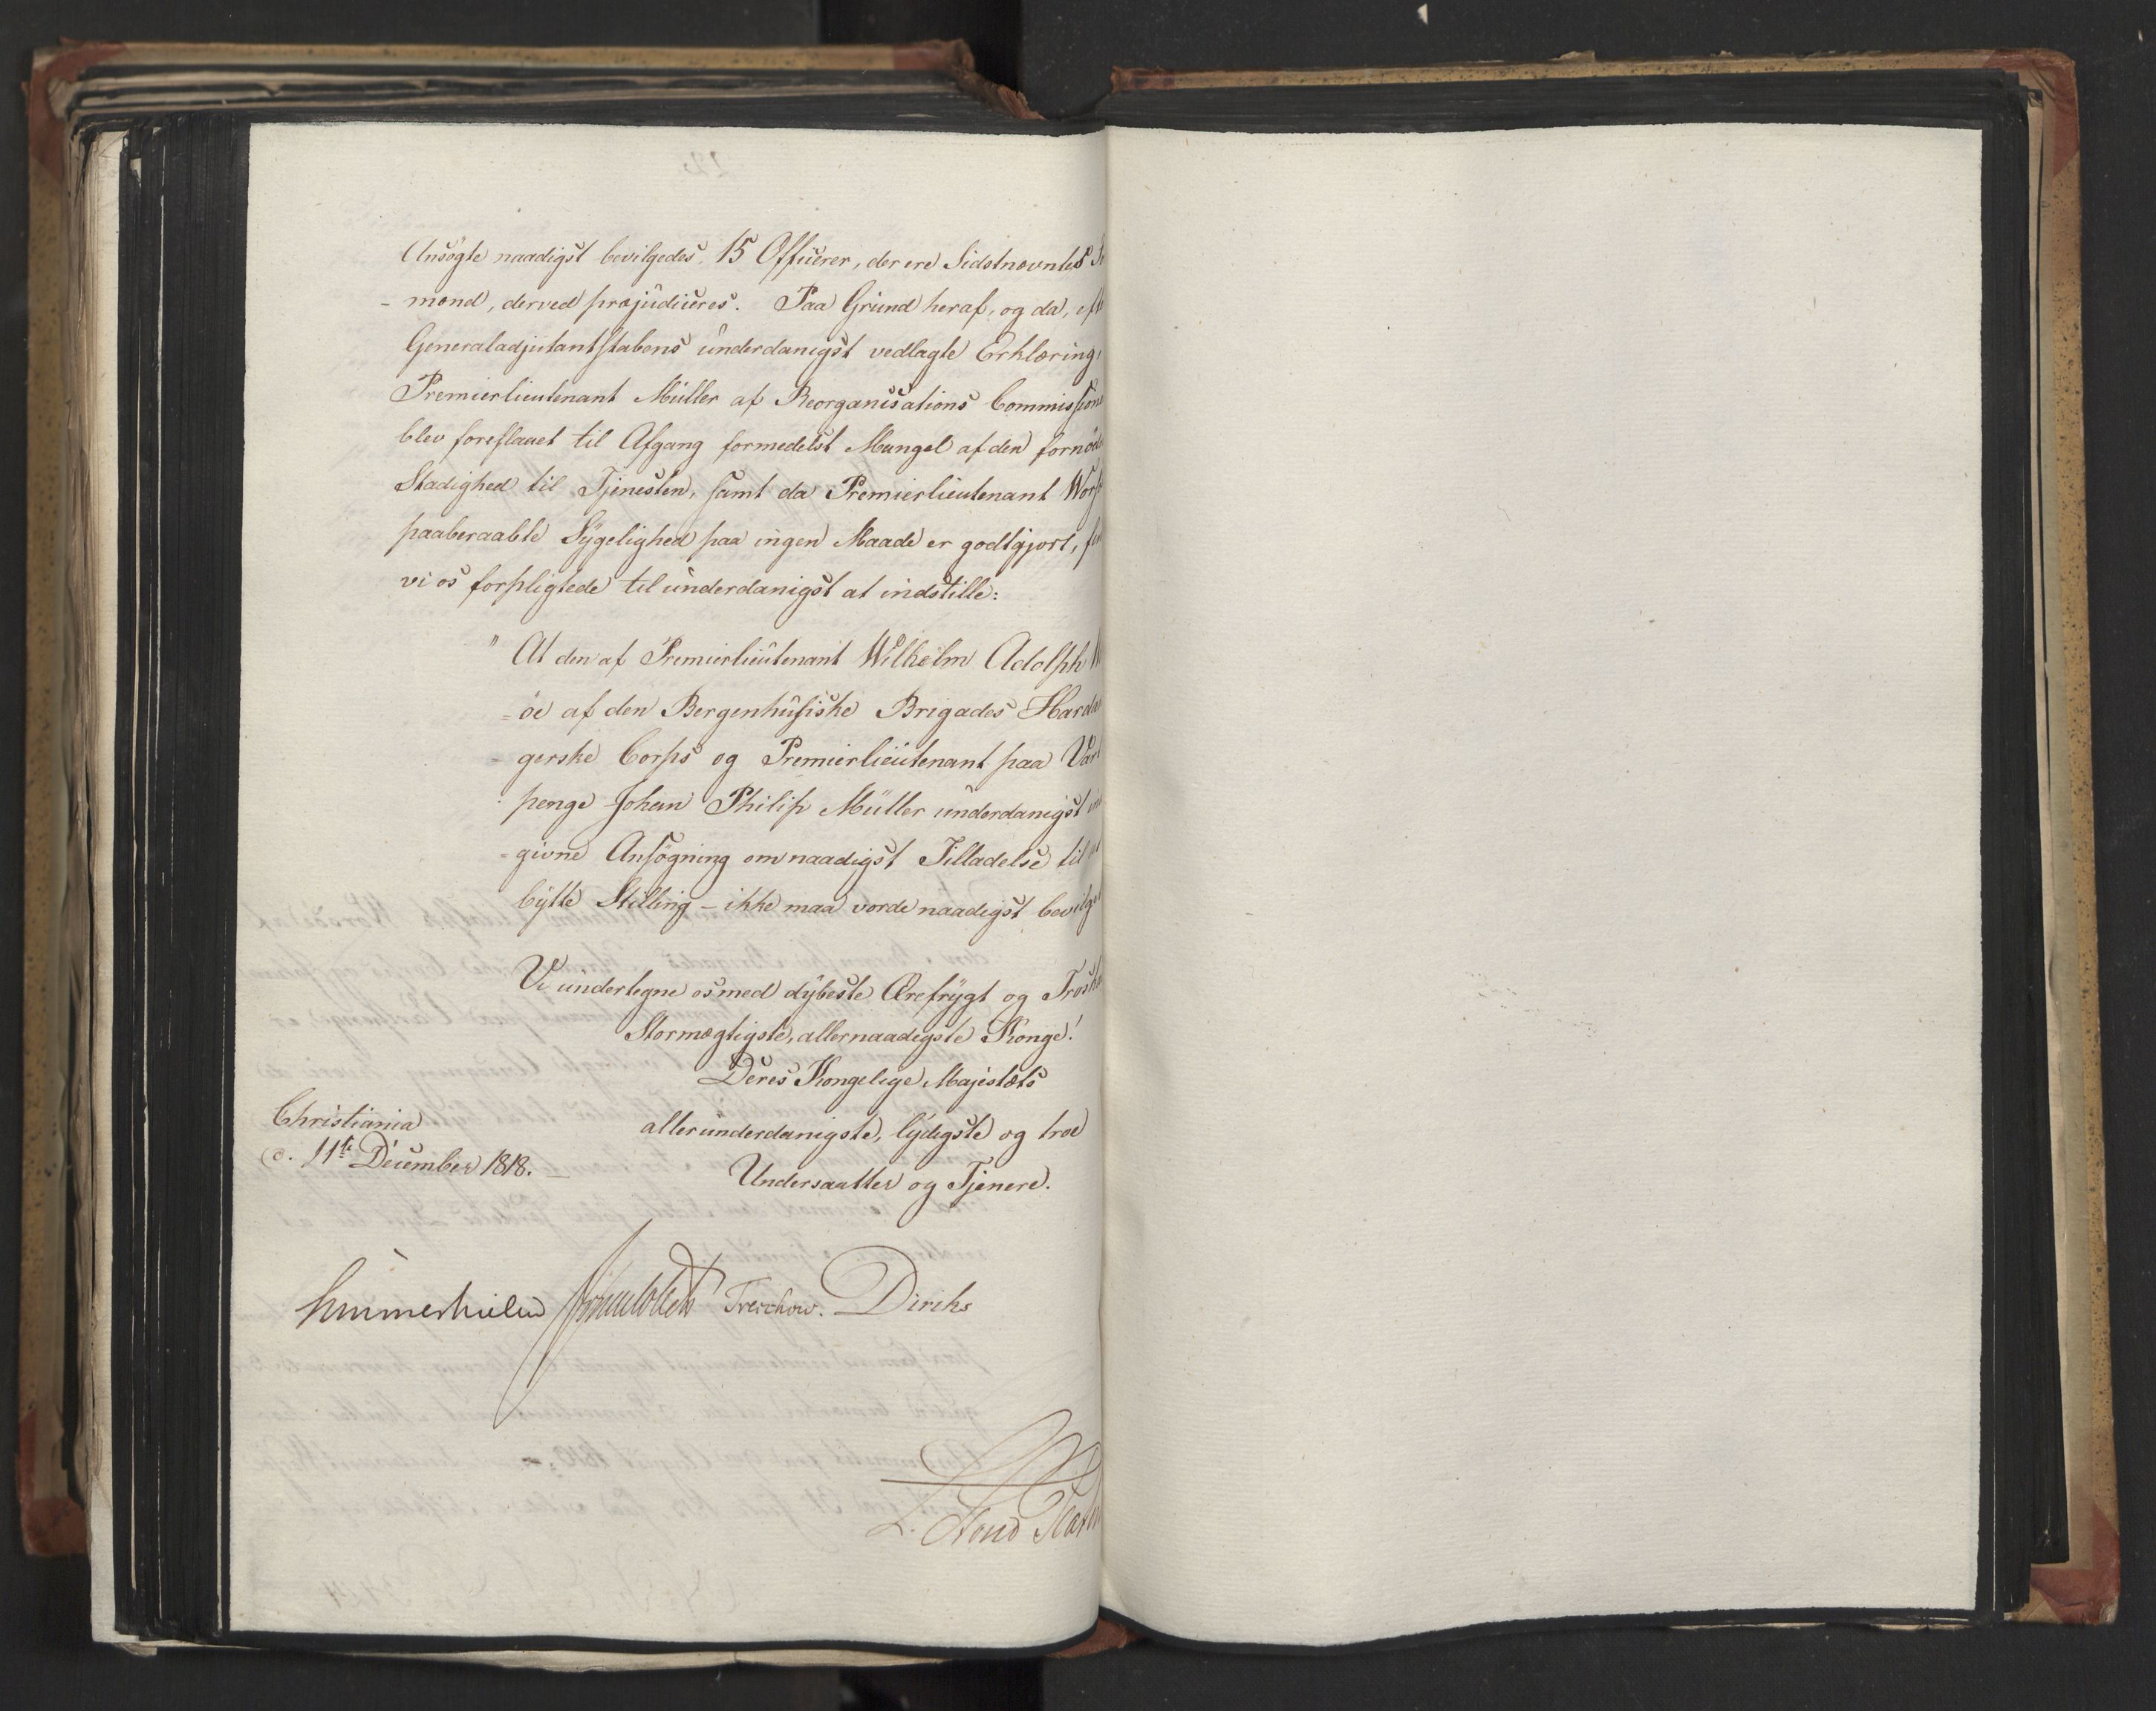 Ansøgte naadigst bevilgedes, 15 Officerer, der ere Sidstnævntes
- mænd, derved præjudiceres. Paa Grund heraf, og da, efte
Generaladjutantstabens underdanigst vedlagte Erklæring,
Premierlieutenant Müller af Reorganisations Commissione
blev foreslaaet til Afgang formedelst Mangel af den fornød
Stadighed til Tjenesten, samt da Premierlieutenant
paaberaabte Sygelighed paa ingen Maade er godtgjort,
vi os forpligtede til underdanigst at indstille:
" At den af Premierlieutenant Wilhelm Adolph
= öe af den Bergenhusiske Brigades Harda
- gerske Corps og Premierlieutenant paa Vart
penge Johan Philip Müller underdanigst
= givne Ansøgning om naadigst Tilladelse til
bytte Stilling – ikke maa vorde naadigst bevilget
Vi undertegne os med dybeste Ærefrygt og Trosk
Stormægtigste, allernaadigste Konge!
Deres Kongelige Majestæts
allerunderdanigste, lydigste og troe
Undersaatter og Tjenere.
Christiania
d. 11te December 1818.
Treschow. Diriks